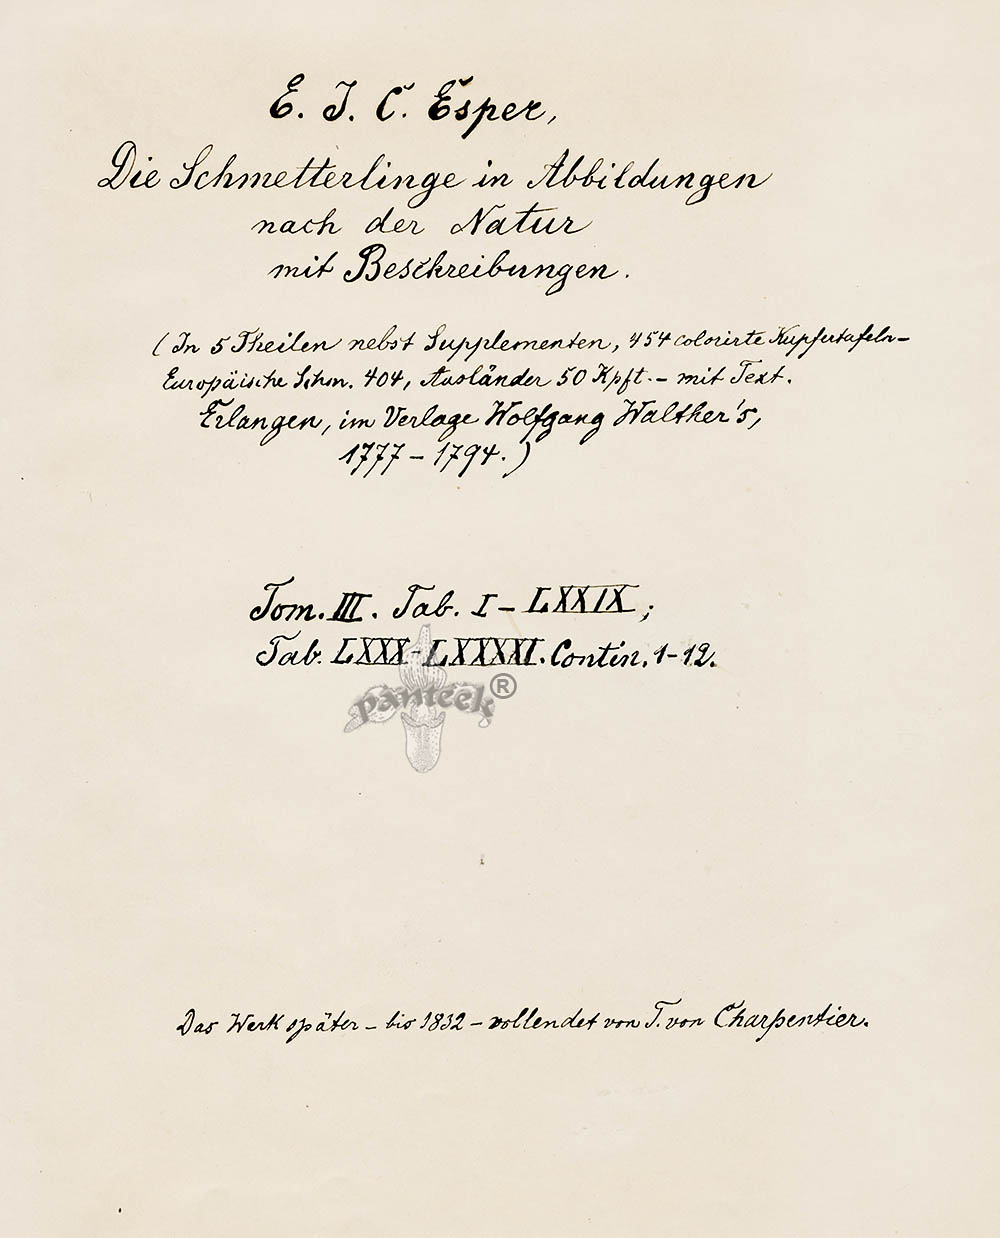 E. J. C. Esper,
Die Schmetterlinge in Abbildungen
nach der Natur
mit Beschreibungen.
(In 5 Theilen nebst Supplementen, 454 colorirte Kupfertafeln–
Europäische Schm. 404, Ausländer 50 Kpft. – mit Text.
Erlangen, im Verlage Wolfgang Walther's,
1777 – 1794.)
Tom. III. Tab. I – LXXIX;
Tab. LXXX – LXXXXI. Contin. 1–12.
panteek®
Das Werk später – bis 1832 – vollendet von T. von Charpentier.